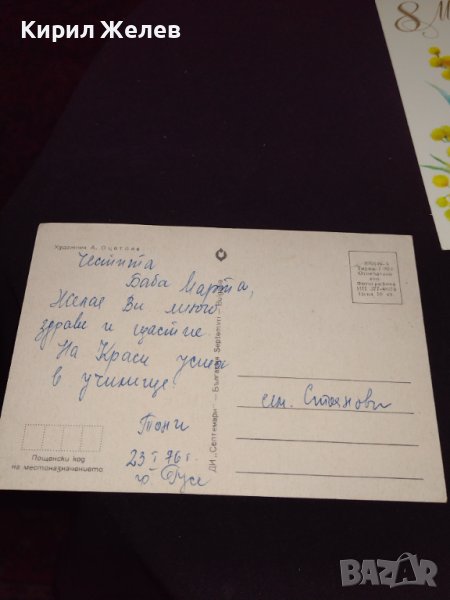 Кирил Желев
8 М
Художник А.
Честита
Баба Марта,
Желая Ви много
здраве и щастие
На Краси успех
в училище
Тони
23 I 76 г.
гр. Русе
Пощенски код
на местоназначението
ДИ „Септември" — България Septemvri — Bulgaria
сем. Стоянови
BAZAR